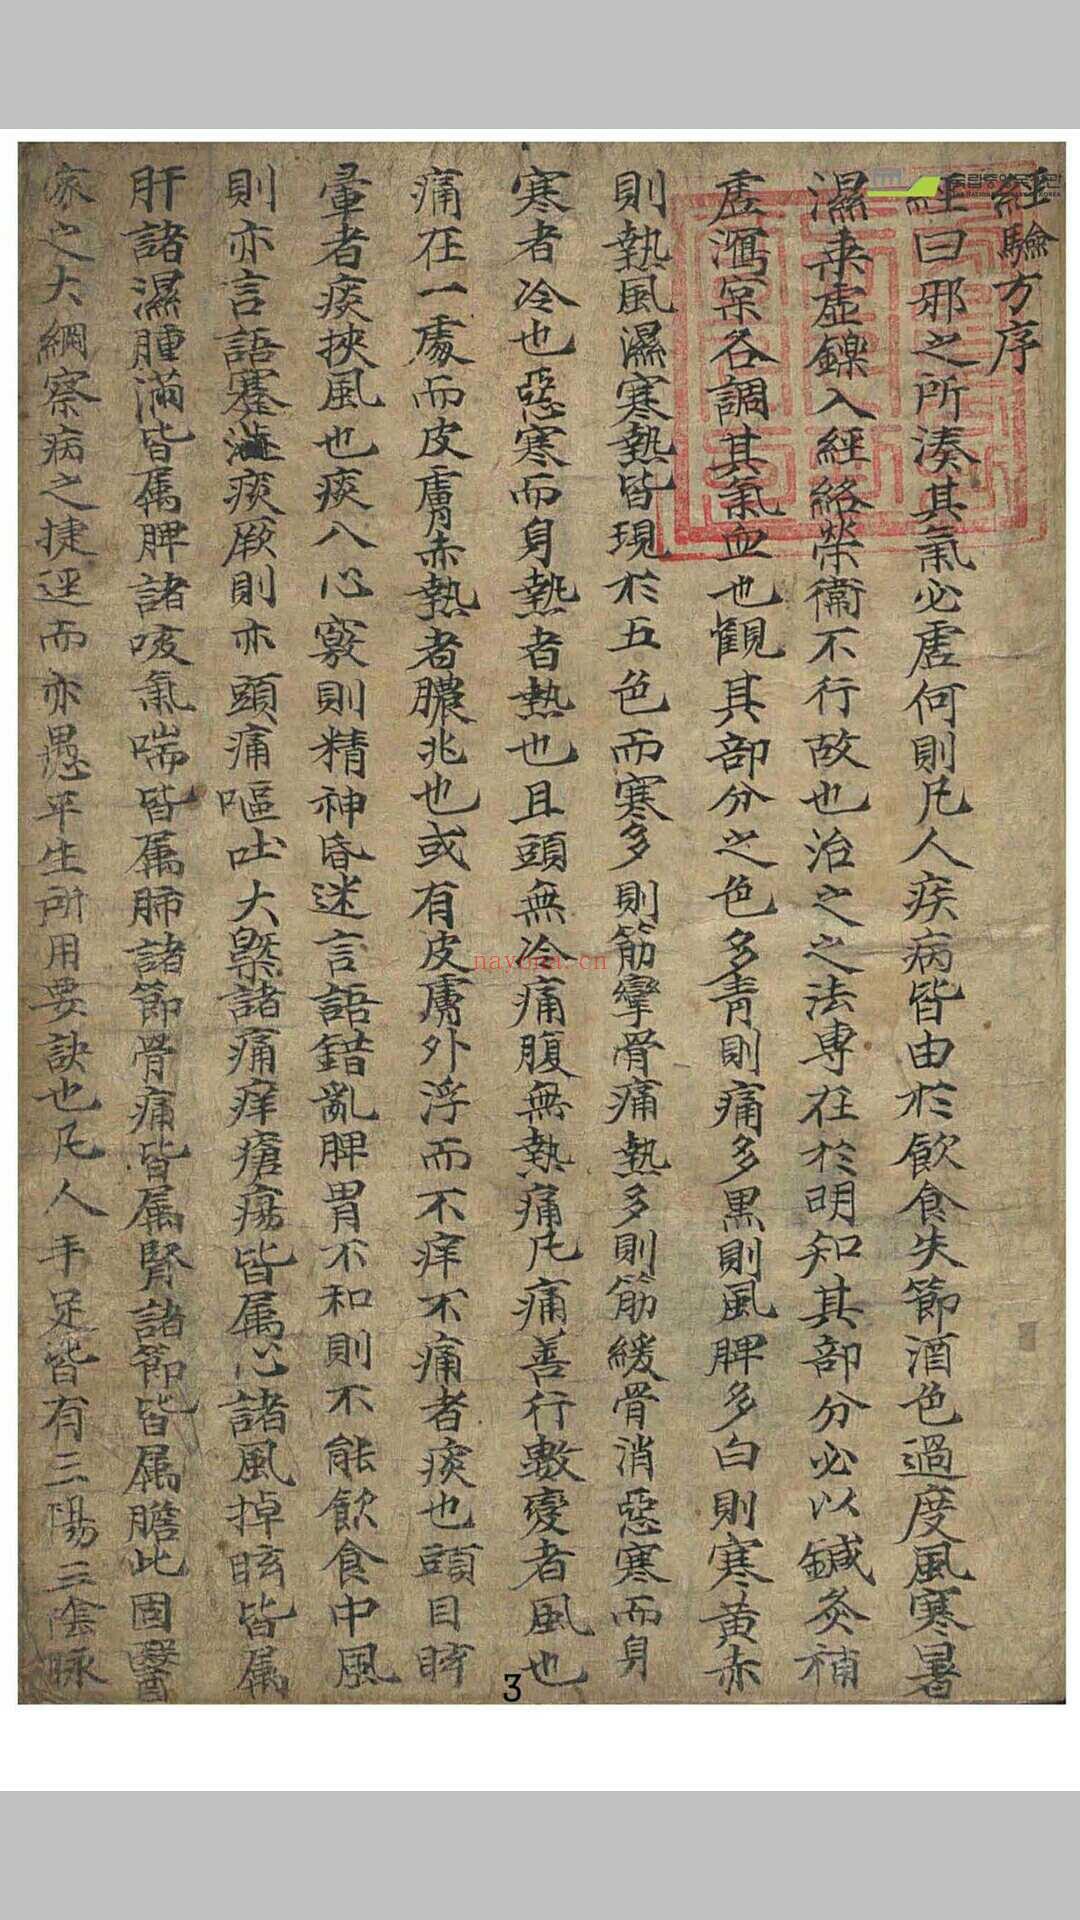 經驗方序
經曰邪之所湊其氣必虛何則凡人疾病皆由於飲食失節酒色過度風寒暑
濕乘虛鎳入經絡榮衞不行故也治之之法專在於明知其部分必以鍼灸補
虛瀉实各調其氣血也觀其部分之色多靑則痛多黑則風脾多白則寒黃赤
則熱風濕寒熱皆現於五色而寒多則筋攣骨痛熱多則筋緩骨消惡寒而身
寒者冷也惡寒而身熱者熱也且頭無冷痛腹無熱痛凡痛善行數變者風也
痛在一處而皮膚赤熱者膿兆也或有皮膚外浮而不痒不痛者痰也頭目眩
暈者痰挾風也痰入心竅則精神昏迷言語錯亂脾胃不和則不能飲食中風
則亦言語蹇澁痰厥則亦頭痛嘔吐大槩諸痛痒瘡瘍皆属心諸風掉眩皆属
肝諸濕腫滿皆属脾諸咳氣喘皆属肺諸節骨痛皆属腎諸節皆属膽此固醫
家之大綱察病之捷逕而亦愚平生所用要訣也凡人手足皆有三陽三陰脉
국립중앙도서관
THE NATIONAL LIBRARY OF KOREA
nayona.cn
3